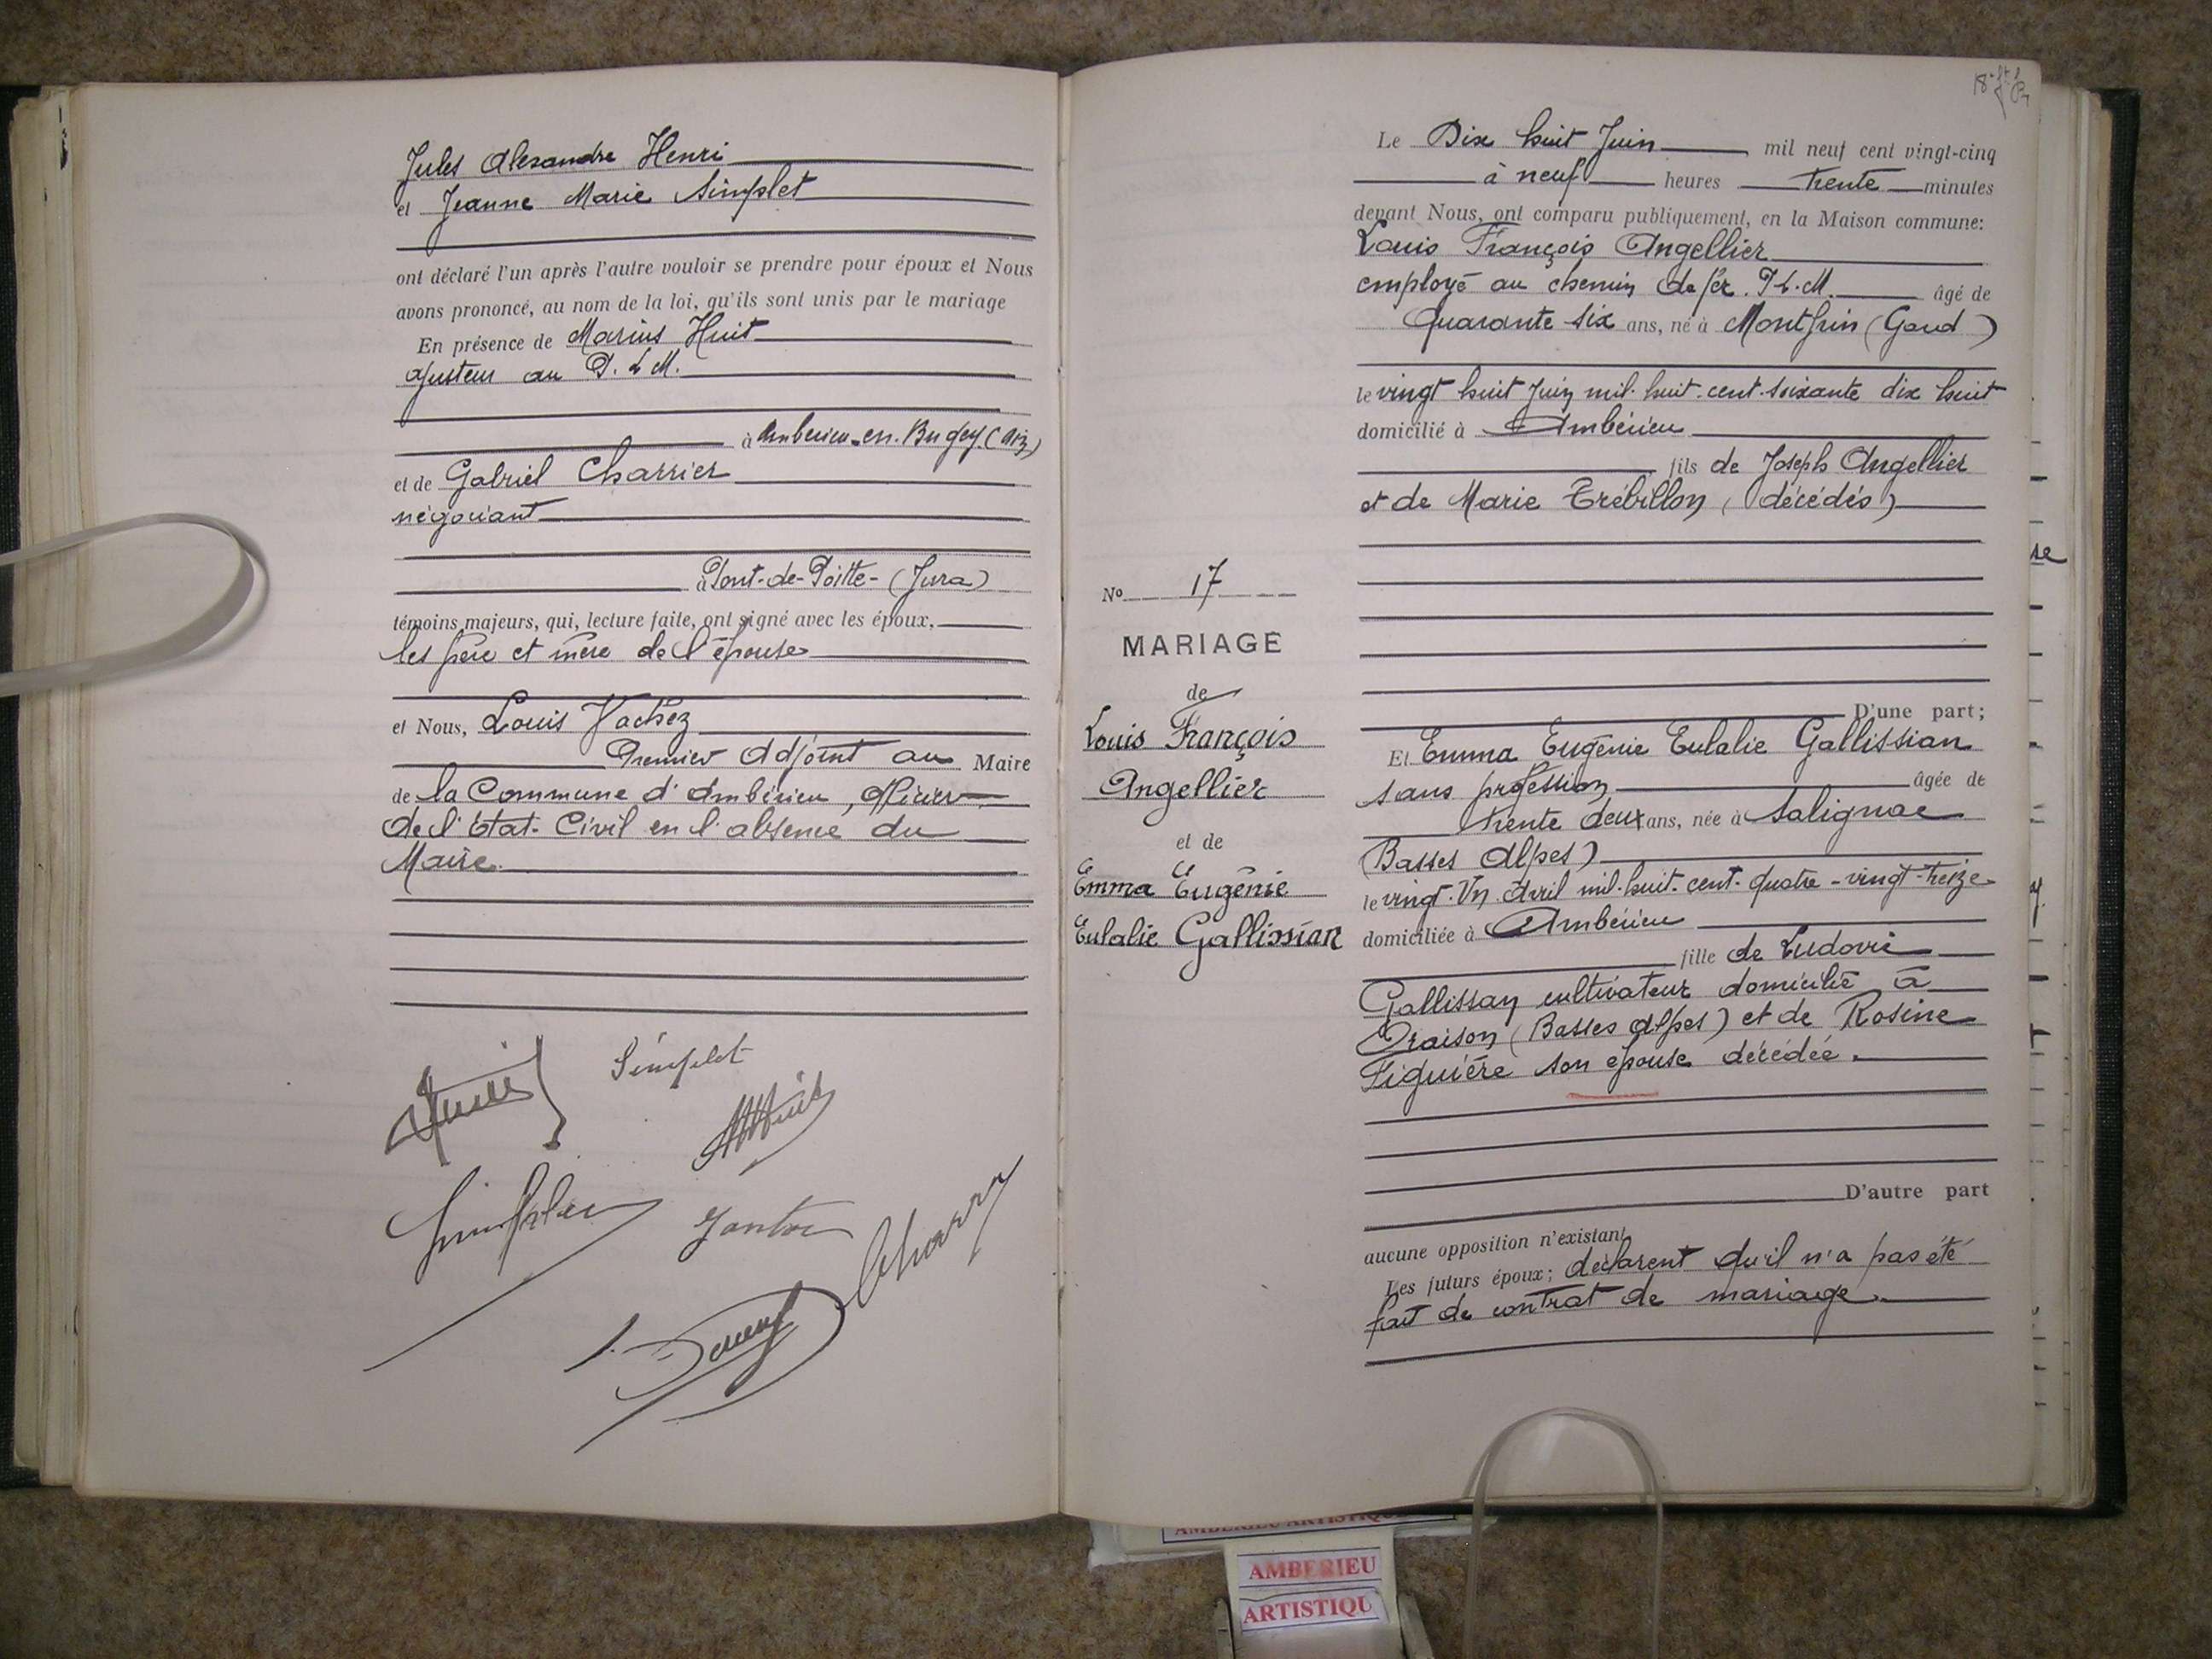 Jules Alexandre Henri
et Jeanne Marie Simplet
ont déclaré l'un après l'autre vouloir se prendre pour époux et Nous
avons prononcé, au nom de la loi, qu'ils sont unis par le mariage
En présence de Marius Huit
ajusteur au P. L M.
à Ambérieu-en-Bugey (Ain)
et de Gabriel Charrier
négociant
à Pont-de-Poitte-(Jura)
témoins majeurs, qui, lecture faite, ont signé avec les époux,
les père et mère de l'épouse
et Nous, Louis Vachez
Premier Adjoint au Maire
de la Commune d'Ambérieu, Officier
de l'Etat-Civil en l'absence du
Maire.
Simplet
18
Le Dix huit Juin mil neuf cent vingt-cinq
à neuf heures trente minutes
devant Nous, ont comparu publiquement, en la Maison commune:
Louis François Angellier
employé au chemin de fer. P.L.M. âgé de
Quarante six ans, né à Montfrin (Gard)
le vingt huit Juin mil. huit. cent. soixante dix huit
domicilié à Ambérieu
fils de Joseph Angellier
et de Marie Trébillon, (décédés)
No 17
MARIAGE
de
Louis François
Angellier
et de
Emma Eugénie
Eulalie Gallissian
D'une part;
Et Emma Eugénie Eulalie Gallissian
sans profession âgée de
trente deux ans, née à Salignac
(Basses Alpes)
le vingt. Un Avril mil. huit. cent. quatre-vingt-treize
domiciliée à Ambérieu
fille de Ludovic
Gallissan cultivateur domicilié à
Oraison (Basses Alpes) et de Rosine
Figuière son épouse décédée.
D'autre part
aucune opposition n'existant
Les futurs époux; déclarent qu'il n'a pas été
fait de contrat de mariage.
AMBERIEU ARTISTIQUE
AMBERIEU
ARTISTIQU